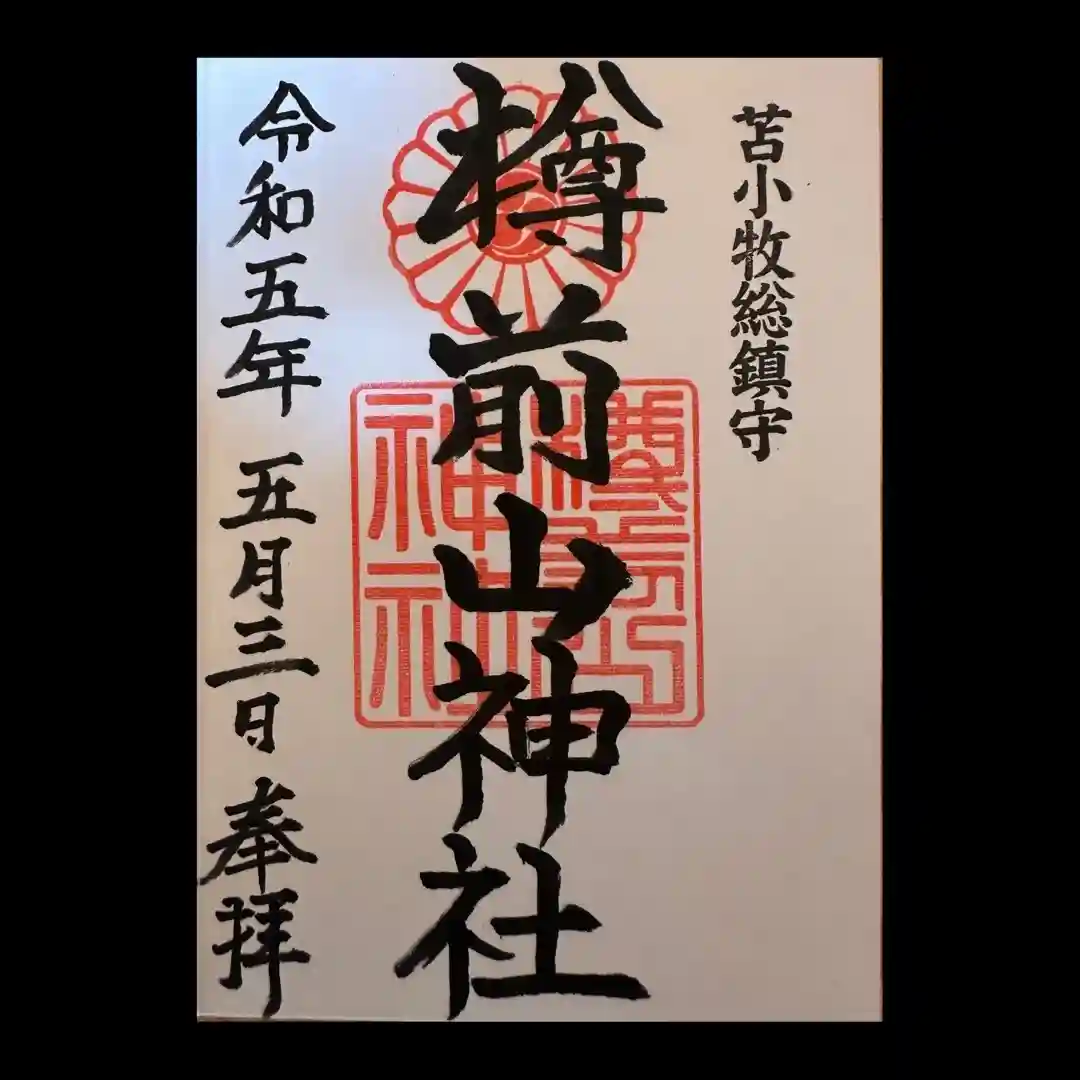 苫小牧総鎮守
樽前山神社
樽前山神社
令和五年 五月三日 奉拝